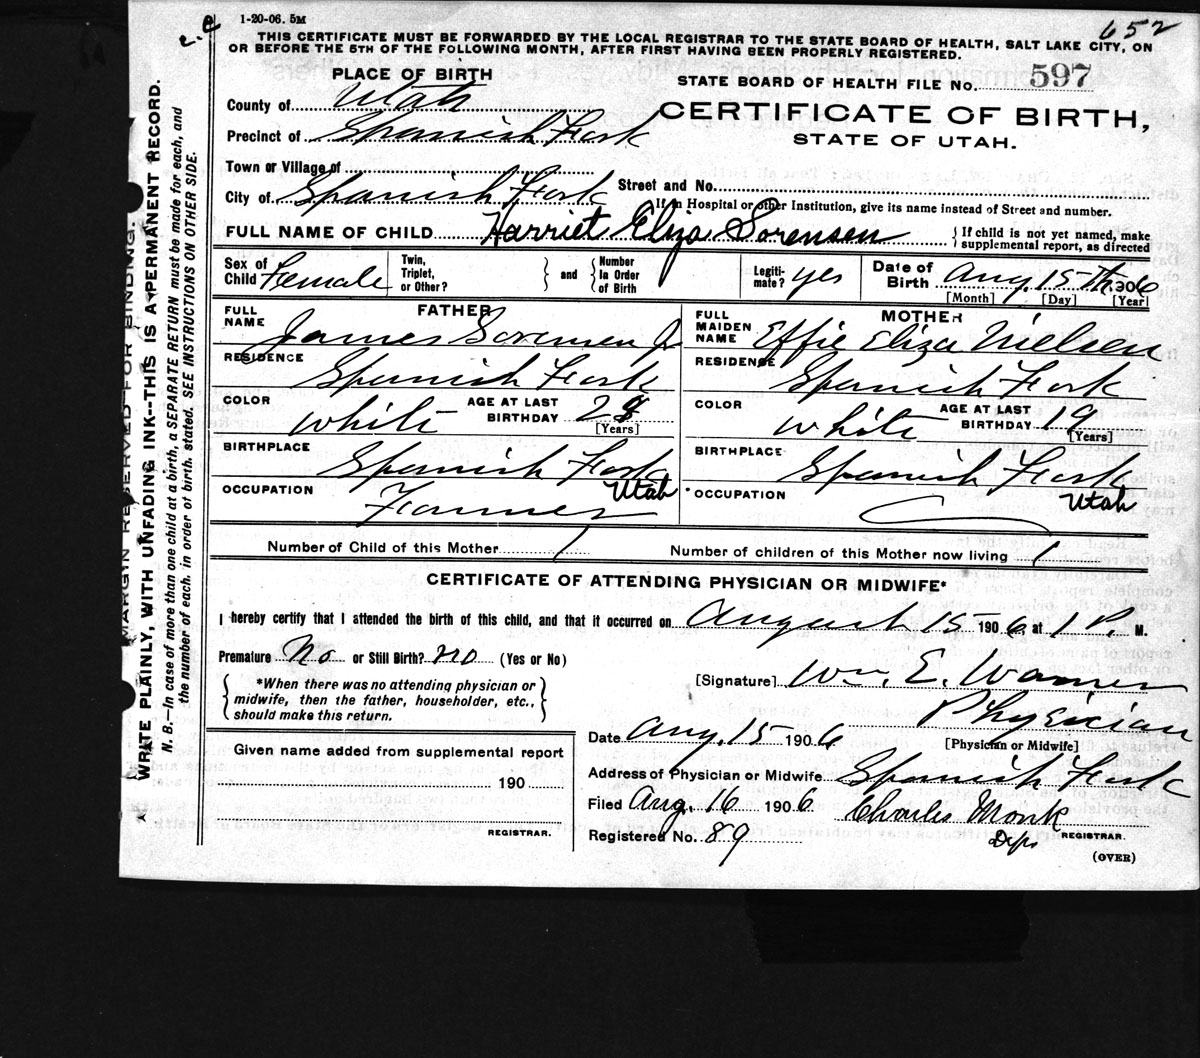 1-20-06. 5M
652
THIS CERTIFICATE MUST BE FORWARDED BY THE LOCAL REGISTRAR TO THE STATE BOARD OF HEALTH, SALT LAKE CITY, ON
OR BEFORE THE 5TH OF THE FOLLOWING MONTH, AFTER FIRST HAVING BEEN PROPERLY REGISTERED.
PLACE OF BIRTH
STATE BOARD OF HEALTH FILE No. 597
County of Utah
CERTIFICATE OF BIRTH,
Precinct of Spanish Fork
STATE OF UTAH.
Town or Village of
City of Spanish Fork Street and No.
If in Hospital or other Institution, give its name instead of Street and number.
FULL NAME OF CHILD Harriet Eliza Sorensen { If child is not yet named, make supplemental report, as directed
Sex of Child Female Twin, Triplet, or Other? } and { Number In Order of Birth Legiti-mate? yes Date of Birth Aug. 15th, 1906
[Month] [Day] [Year]
FATHER MOTHER
FULL NAME James Sorensen Jr FULL MAIDEN NAME Effie Eliza Nielsen
RESIDENCE Spanish Fork RESIDENCE Spanish Fork
COLOR White AGE AT LAST BIRTHDAY 28 [Years] COLOR White AGE AT LAST BIRTHDAY 19 [Years]
BIRTHPLACE Spanish Fork Utah BIRTHPLACE Spanish Fork Utah
OCCUPATION Farmer OCCUPATION
Number of Child of this Mother 1 Number of children of this Mother now living 1
CERTIFICATE OF ATTENDING PHYSICIAN OR MIDWIFE*
I hereby certify that I attended the birth of this child, and that it occurred on August 15 1906 at 1 P. M.
Premature No or Still Birth? no (Yes or No)
[Signature] Wm. E. Warner
{ *When there was no attending physician or midwife, then the father, householder, etc., should make this return. }
Physician
Date Aug. 15 1906 [Physician or Midwife]
Given name added from supplemental report
190
REGISTRAR.
Address of Physician or Midwife Spanish Fork
Filed Aug. 16 1906 Charles Monk
Registered No. 89 Dept REGISTRAR.
(OVER)
MARGIN RESERVED FOR BINDING.
WRITE PLAINLY, WITH UNFADING INK--THIS IS A PERMANENT RECORD.
N. B.—In case of more than one child at a birth, a SEPARATE RETURN must be made for each, and
the number of each, in order of birth, stated. SEE INSTRUCTIONS ON OTHER SIDE.